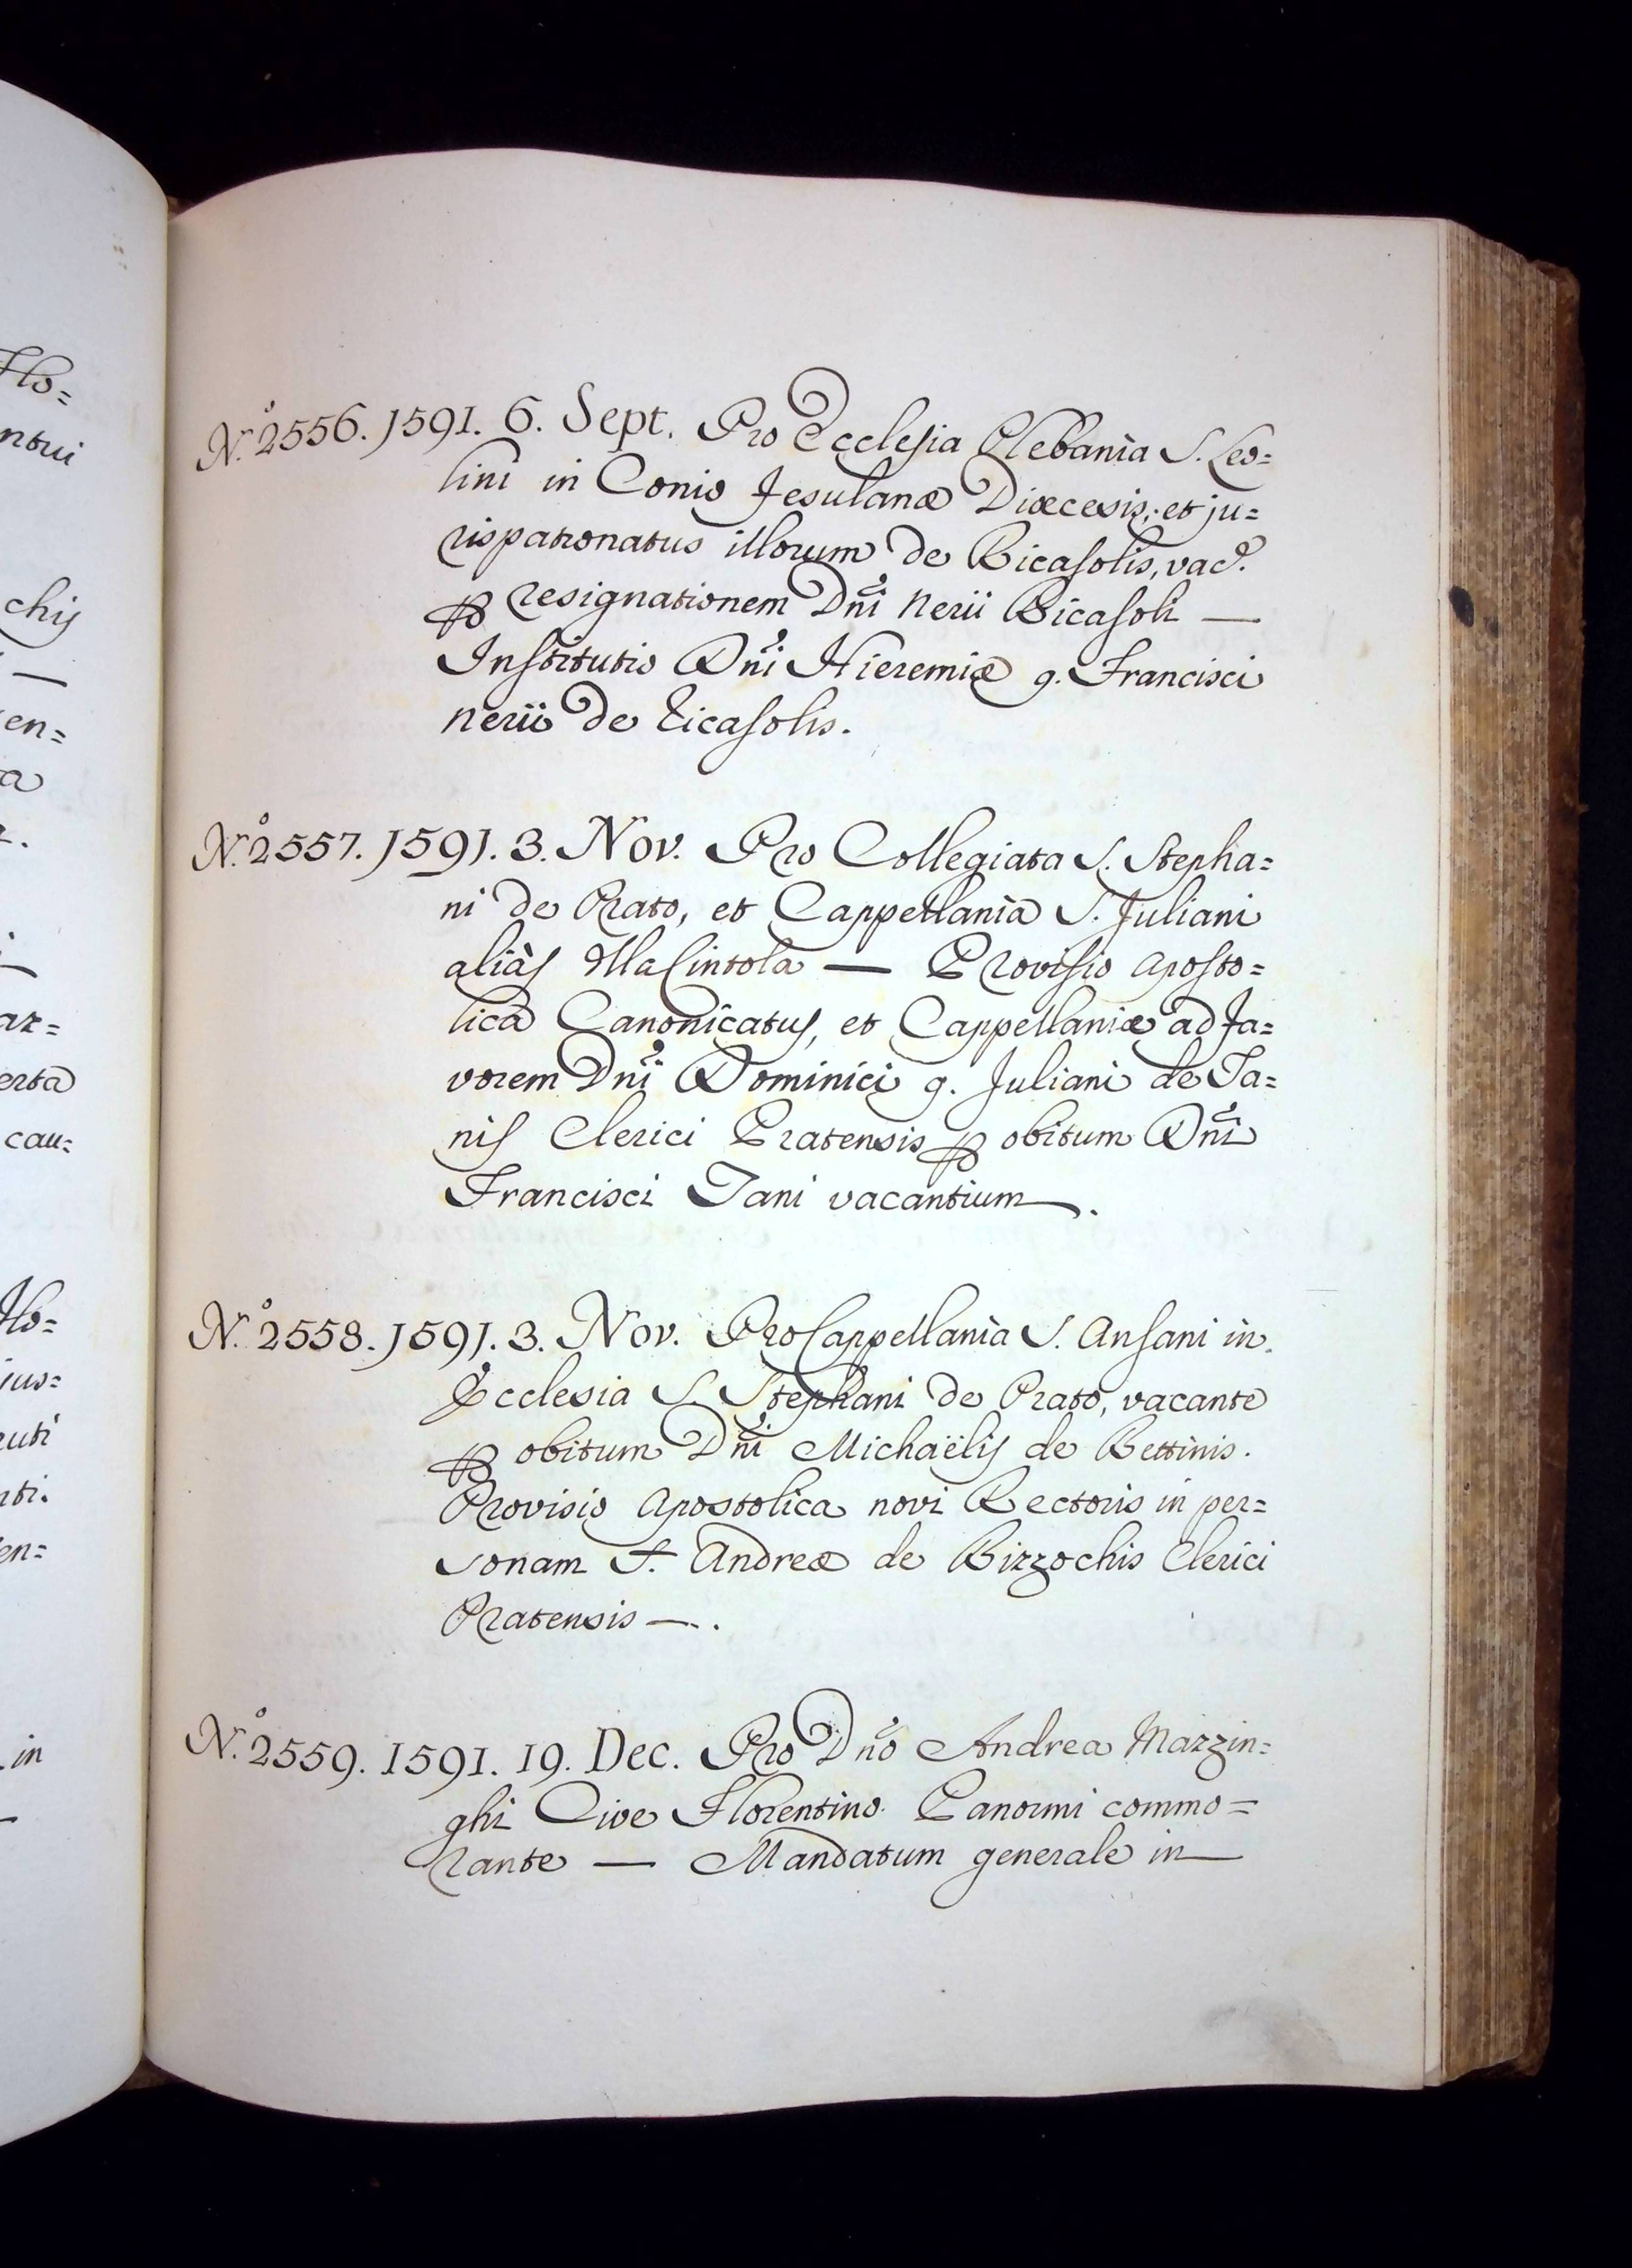 Flo=
ntui
chis
en=
a
ar=
erta
cau=
Flo=
ius=
euti
nti.
en=
in
N.º 2556. 1591. 6. Sept. Pro Ecclesia Plebania S. Leo=
lini in Conio Fesulanæ Diœcesis, et ju=
rispatronatus illorum de Ricasolis, vac.e
ꝑ resignationem Dñi Nerii Ricasoli —
Institutio Dñi Hieremiæ q. Francisci
Nerii de Ricasolis.
N.º 2557. 1591. 3. Nov. Pro Collegiata S. Stepha=
ni de Prato, et Cappellania S. Juliani
aliàs Malintola — Provisio Aposto=
lica Canonicatus, et Cappellaniæ ad fa=
vorem Dñi Dominici q. Juliani de Ta=
nis Clerici Pratensis ꝑ obitum Dñi
Francisci Tani vacantium.
N.º 2558. 1591. 3. Nov. Pro Cappellania S. Ansani in
Ecclesia S. Stephani de Prato, vacante
ꝑ obitum Dñi Michaëlis de Bettinis.
Provisio Apostolica novi Rectoris in per=
sonam F. Andreæ de Bizzochis Clerici
Pratensis —.
N.º 2559. 1591. 19. Dec. Pro Dño Andrea Mazzin=
ghi Cive Florentino Panormi commo=
rante — Mandatum generale in